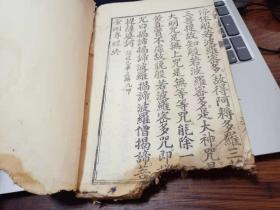 佛依般若波羅密多故得阿耨多羅三
三菩提故知般若波羅密多是大神咒
大明咒是無上咒是無等等咒能除一
苦真實不虛故說般若波羅密多咒即
咒曰揭諦揭諦波羅揭諦波羅僧揭諦菩
提薩婆訶
金剛尊經終